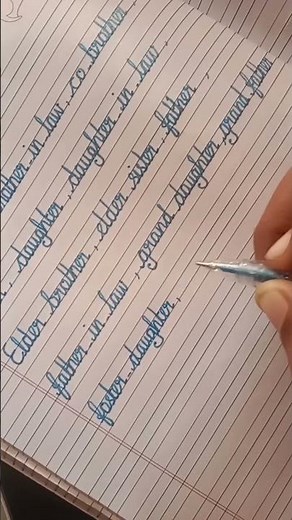 in law, co brother,
daughter, daughter in law,
Elder brother, elder sister, father,
father in law, grand daughter, grand father
foster daughter,